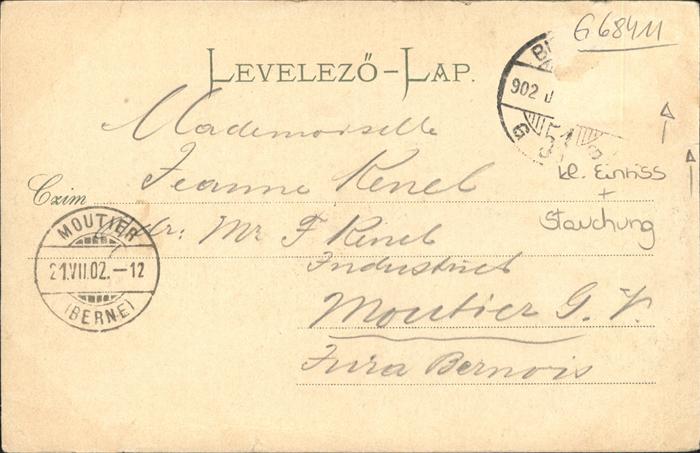 G68411
LEVELEZŐ-LAP.
902
Mademoiselle
Jeanne Kenel
Czim
kl. Einriss
+
Stauchung
Mr F Kenel
Industriel
MOUTIER
21.VII.02.-12
(BERNE)
Moutier G. V.
Jura Bernois